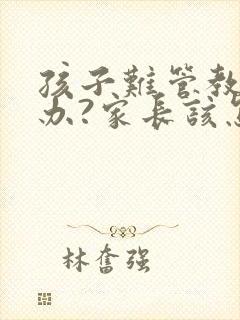 孩子難管教
办?家長該怎
林奮强